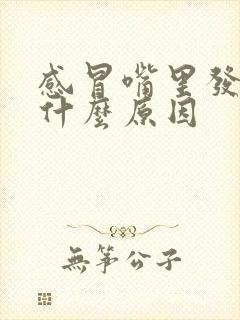 感冒嘴里發
什麼原因
無箏公子